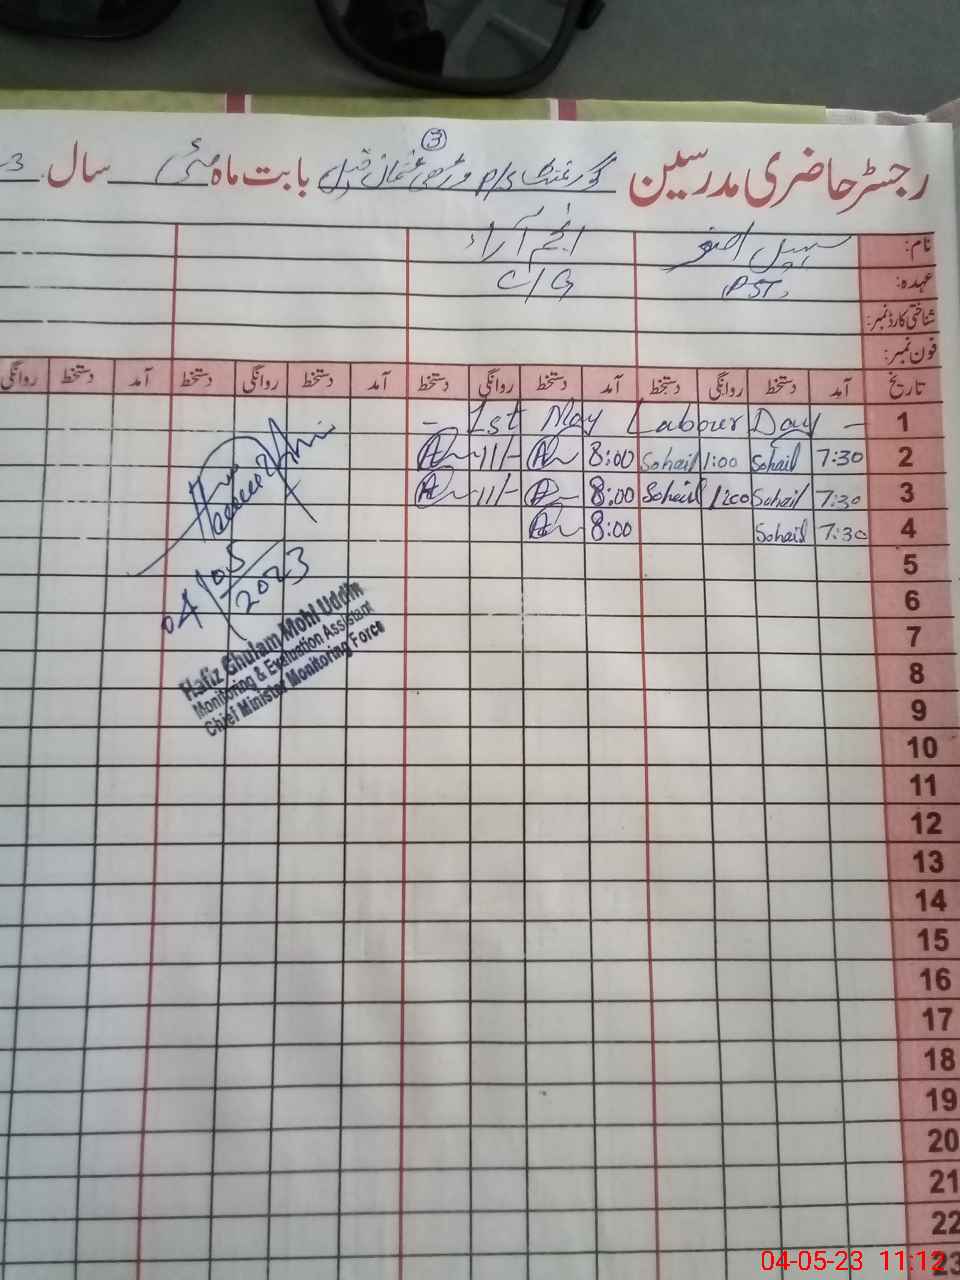 ③
رجسٹر حاضری مدرسین گورنمنٹ P/S بابت ماہ مئی سال 3
نام: سہیل اصغر انجم آراء
عہدہ: PST C/G
شناختی کارڈ نمبر:
فون نمبر:
تاریخ آمد دستخط روانگی دستخط آمد دستخط روانگی دستخط آمد دستخط روانگی دستخط آمد دستخط روانگی
1 - 1st May Labour Day -
2 7:30 Sohail 1:00 Sohail 8:00 11/-
3 7:30 Sohail 1:00 Sohail 8:00 11/-
4 7:30 Sohail 8:00
5
6
7
8
9
10
11
12
13
14
15
16
17
18
19
20
21
22
23
04/05/2023
Hafiz Ghulam Mohi Uddin
Monitoring & Evaluation Assistant
Chief Minister Monitoring Force
04-05-23 11:12